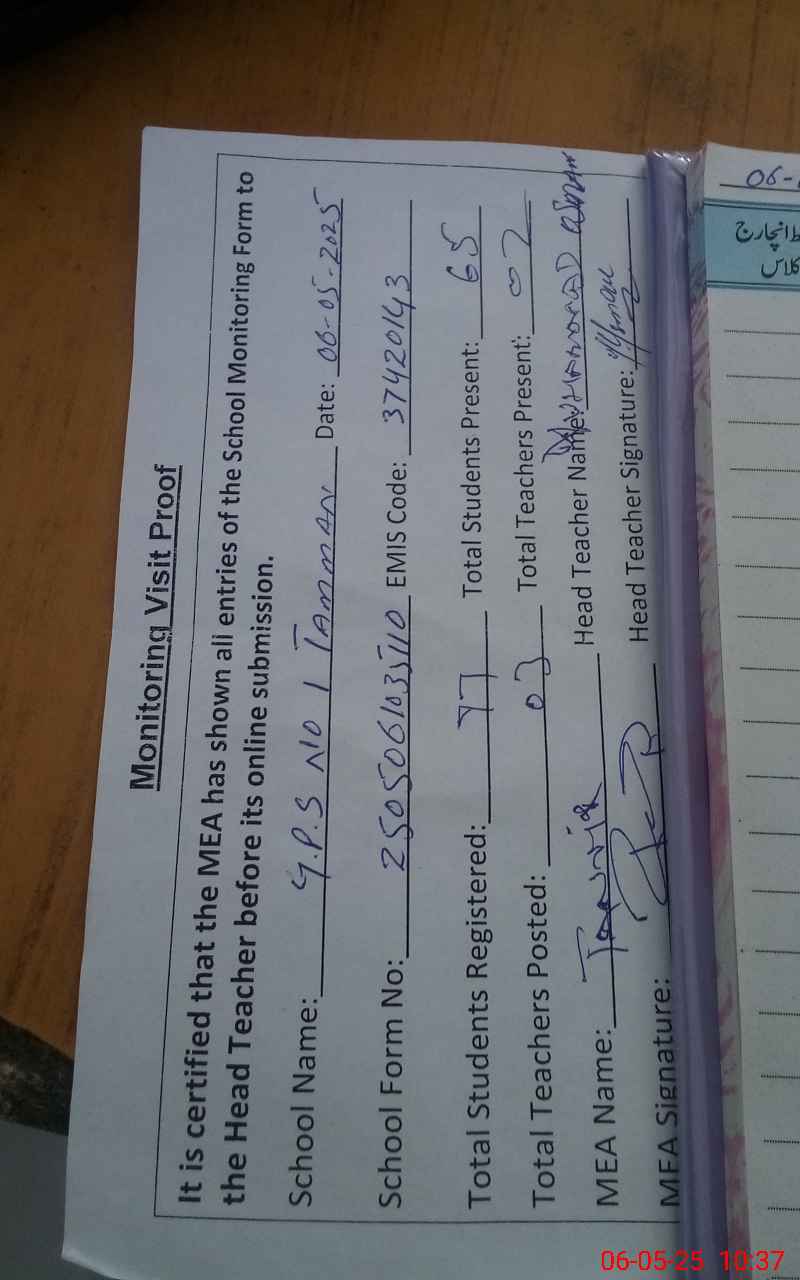 Monitoring Visit Proof
It is certified that the MEA has shown all entries of the School Monitoring Form to
the Head Teacher before its online submission.
School Name: G.P.S NO 1 TAMMAN Date: 06-05-2025
School Form No: 2505061035110 EMIS Code: 37420143
Total Students Registered: 77 Total Students Present: 65
Total Teachers Posted: 03 Total Teachers Present: 02
MEA Name: Head Teacher Name: MUHAMMAD
MEA Signature: Head Teacher Signature:
06-
انچارج
کلاس
06-05-25 10:37